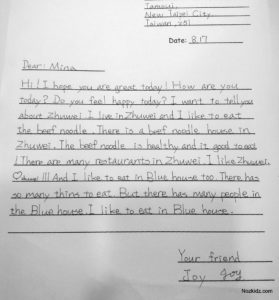 Tamsui,
New Taipei City,
Taiwan, 251
Date: 8.17
Dear: Mina
Hi! I hope you are great today! How are you
today? Do you feel happy today? I want to tell you
about Zhuwei. I live in Zhuwei and I like to eat
the beef noodle. There is a beef noodle house in
Zhuwei. The beef noodle is healthy and it good to eat
! There are many restaurants in Zhuwei. I like Zhuwei.
!!! And I like to eat in Blue house too. There has
so many thing to eat. But there has many people in
the Blue house. I like to eat in Blue house.
Your friend
Joy Joy
Nozkidz.com